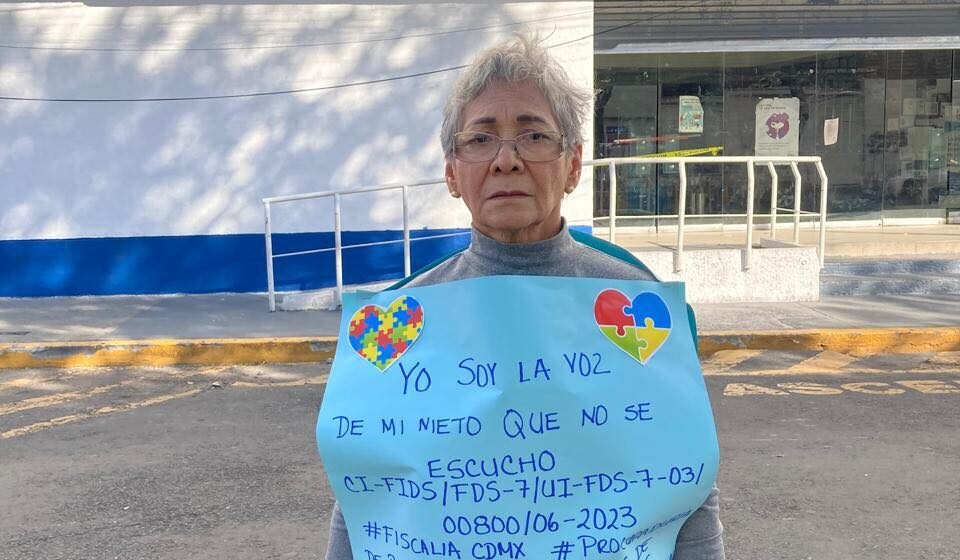 YO SOY LA VOZ
DE MI NIETO QUE NO SE
ESCUCHO
CI-FIDS/FDS-7/UI-FDS-7-03/
00800/06-2023
#FISCALIA CDMX #PROCURADURIA
DE
DE
ASCE